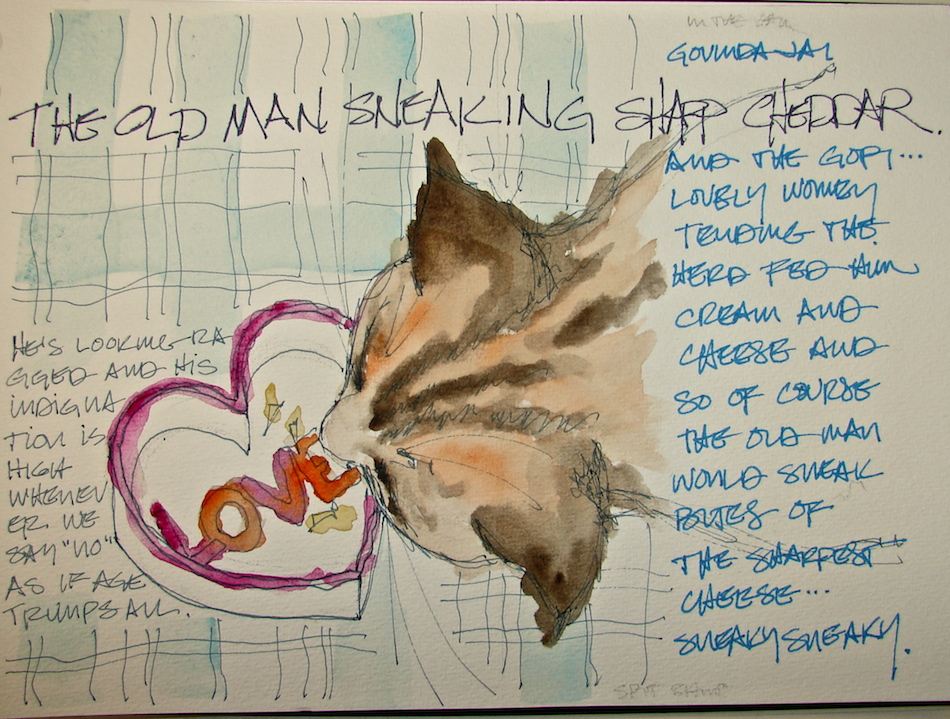 IN THE
GOVINDA JAI
THE OLD MAN SNEAKING SHARP CHEDDAR.
AND THE GOPI...
LOVELY WOMEN
TENDING THE
HERD FED HIM
CREAM AND
CHEESE AND
SO OF COURSE
THE OLD MAN
WOULD SNEAK
BITES OF
THE SHARPEST
CHEESE...
SNEAKY SNEAKY.
HE'S LOOKING RA
GGED AND HIS
INDIGNA
TION IS
HIGH
WHENEV
ER WE
SAY "NO"
AS IF AGE
TRUMPS ALL.
LOVE